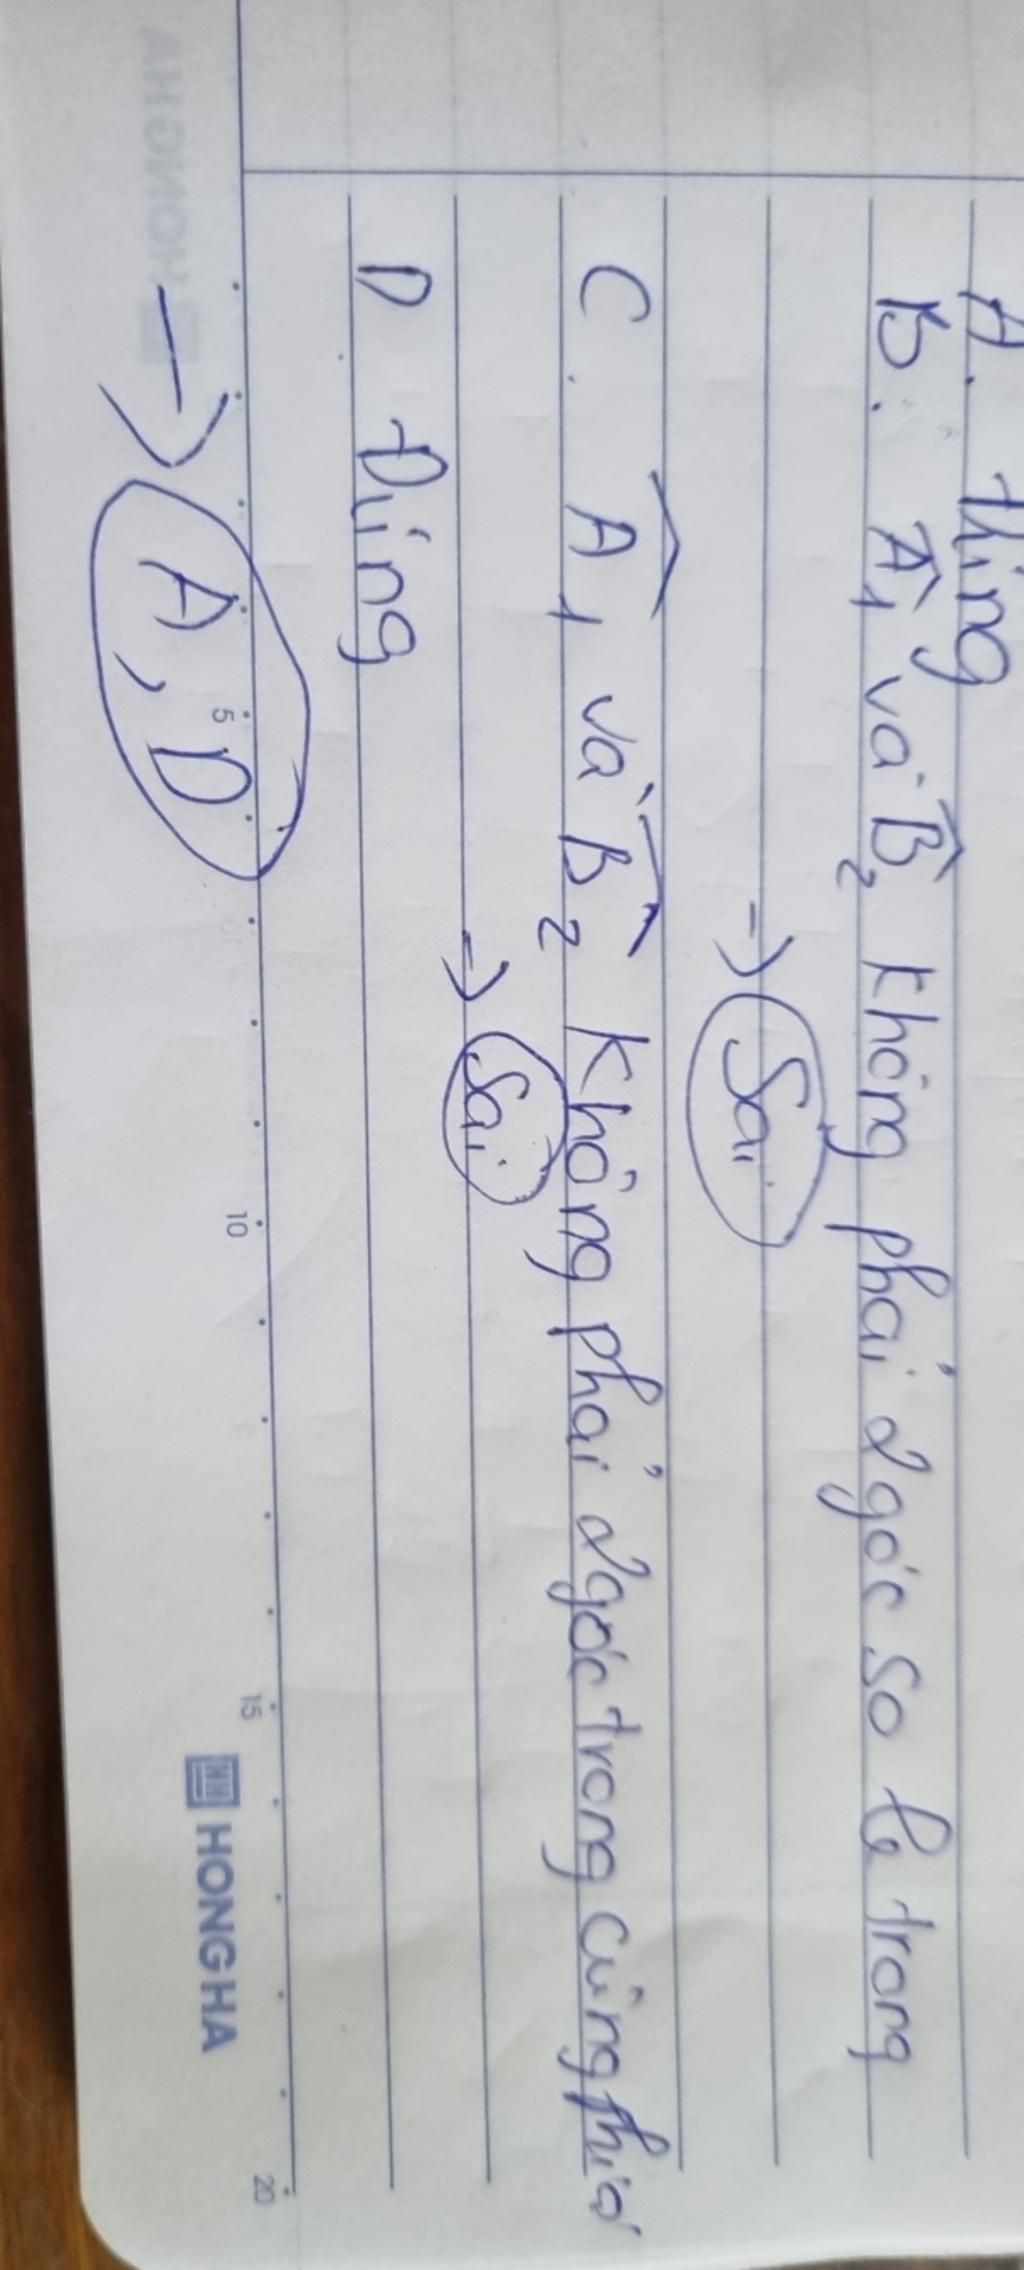 A. Đúng
B. Â₁ và B̂₂ không phải 2 góc so le trong
→ Sai
C. Â₁ và B̂₂ không phải 2 góc trong cùng phía
→ Sai
D Đúng
→ A, D
5 10 15 20
HONG HA